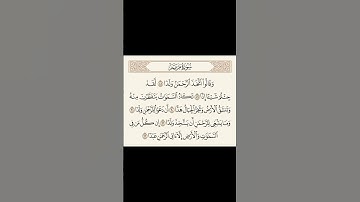 سُورَةُ مَرْيَمَ
وَقَالُوا۟ ٱتَّخَذَ ٱلرَّحْمَٰنُ وَلَدًا ٨٨ لَّقَدْ
جِئْتُمْ شَيْـًٔا إِدًّا ٨٩ تَكَادُ ٱلسَّمَٰوَٰتُ يَتَفَطَّرْنَ مِنْهُ
وَتَنشَقُّ ٱلْأَرْضُ وَتَخِرُّ ٱلْجِبَالُ هَدًّا ٩٠ أَن دَعَوْا۟ لِلرَّحْمَٰنِ وَلَدًا ٩١
وَمَا يَنۢبَغِى لِلرَّحْمَٰنِ أَن يَتَّخِذَ وَلَدًا ٩٢ إِن كُلُّ مَن فِى
ٱلسَّمَٰوَٰتِ وَٱلْأَرْضِ إِلَّآ ءَاتِى ٱلرَّحْمَٰنِ عَبْدًا ٩٣